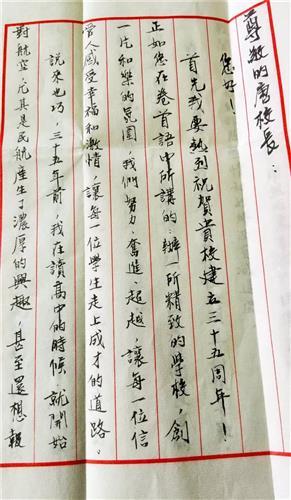 尊敬的唐校長：
您好！
首先我要熱烈祝賀貴校建立三十五周年！
正如您在卷首語中所講的：辦一所精致的學校，創
一片和樂的氛圍，我們努力、奮進、超越，讓每一位信
管人感受幸福和激情，讓每一位學生走上成才的道路。
說來也巧，三十五年前，我在讀高中的時候，就開始
對航空，尤其是民航產生了濃厚的興趣，甚至還想報